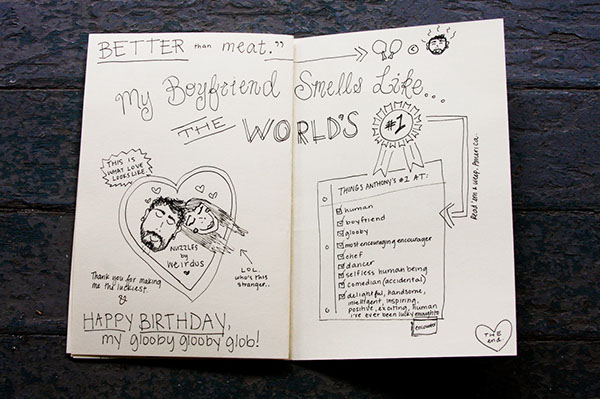 BETTER than meat."
My Boyfriend Smells Like...
THE WORLD'S
#1
THIS IS
WHAT LOVE
LOOKS LIKE.
NUZZLES
by
Weirdus
LOL.
who's this
stranger..
Thank you for making
me the luckiest.
&
HAPPY BIRTHDAY,
my glooby glooby glob!
Read 'em & weep, America.
THINGS ANTHONY'S #1 AT:
human
boyfriend
glooby
most encouraging encourager
chef
dancer
selfless human being
comedian (accidental)
delightful, handsome,
intelligent, inspiring,
positive, exciting, human
i've ever been lucky enough to
encounter
THE
end